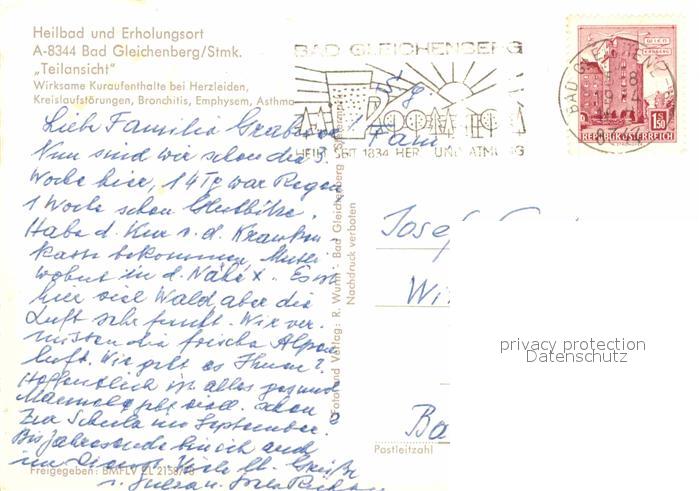 Heilbad und Erholungsort
A-8344 Bad Gleichenberg/Stmk.
„Teilansicht"
Wirksame Kuraufenthalte bei Herzleiden,
Kreislaufstörungen, Bronchitis, Emphysem, Asthma
BAD GLEICHENBERG
HEILT SEIT 1834 HERZ UND ATMUNG
WIEN
1.50
REPUBLIK ÖSTERREICH
Liebe Familie
Nun sind wir schon die 3.
Woche hier, 14 Tg war Regen
1 Woche schon Gluthitze.
Habe d. Kur v. d. Kranken
kasse bekommen, Mutter
wohnt in d. Nähe x. Es ist
hier viel Wald aber die
Luft sehr feucht. Wir ver-
missen die frische Alpen
luft. Wie geht es Ihnen?
Hoffentlich ist alles gesund
geht schon
zur Schule im September.
Bis Jahresende bin ich auch
im Dienst. Viele lb. Grüße
Fotos und Verlag: R. Wurm - Bad Gleichenberg
Nachdruck verboten
Josef
Wi
Ba
Postleitzahl
privacy protection
Datenschutz
Freigegeben: BMFLV ZL 2158